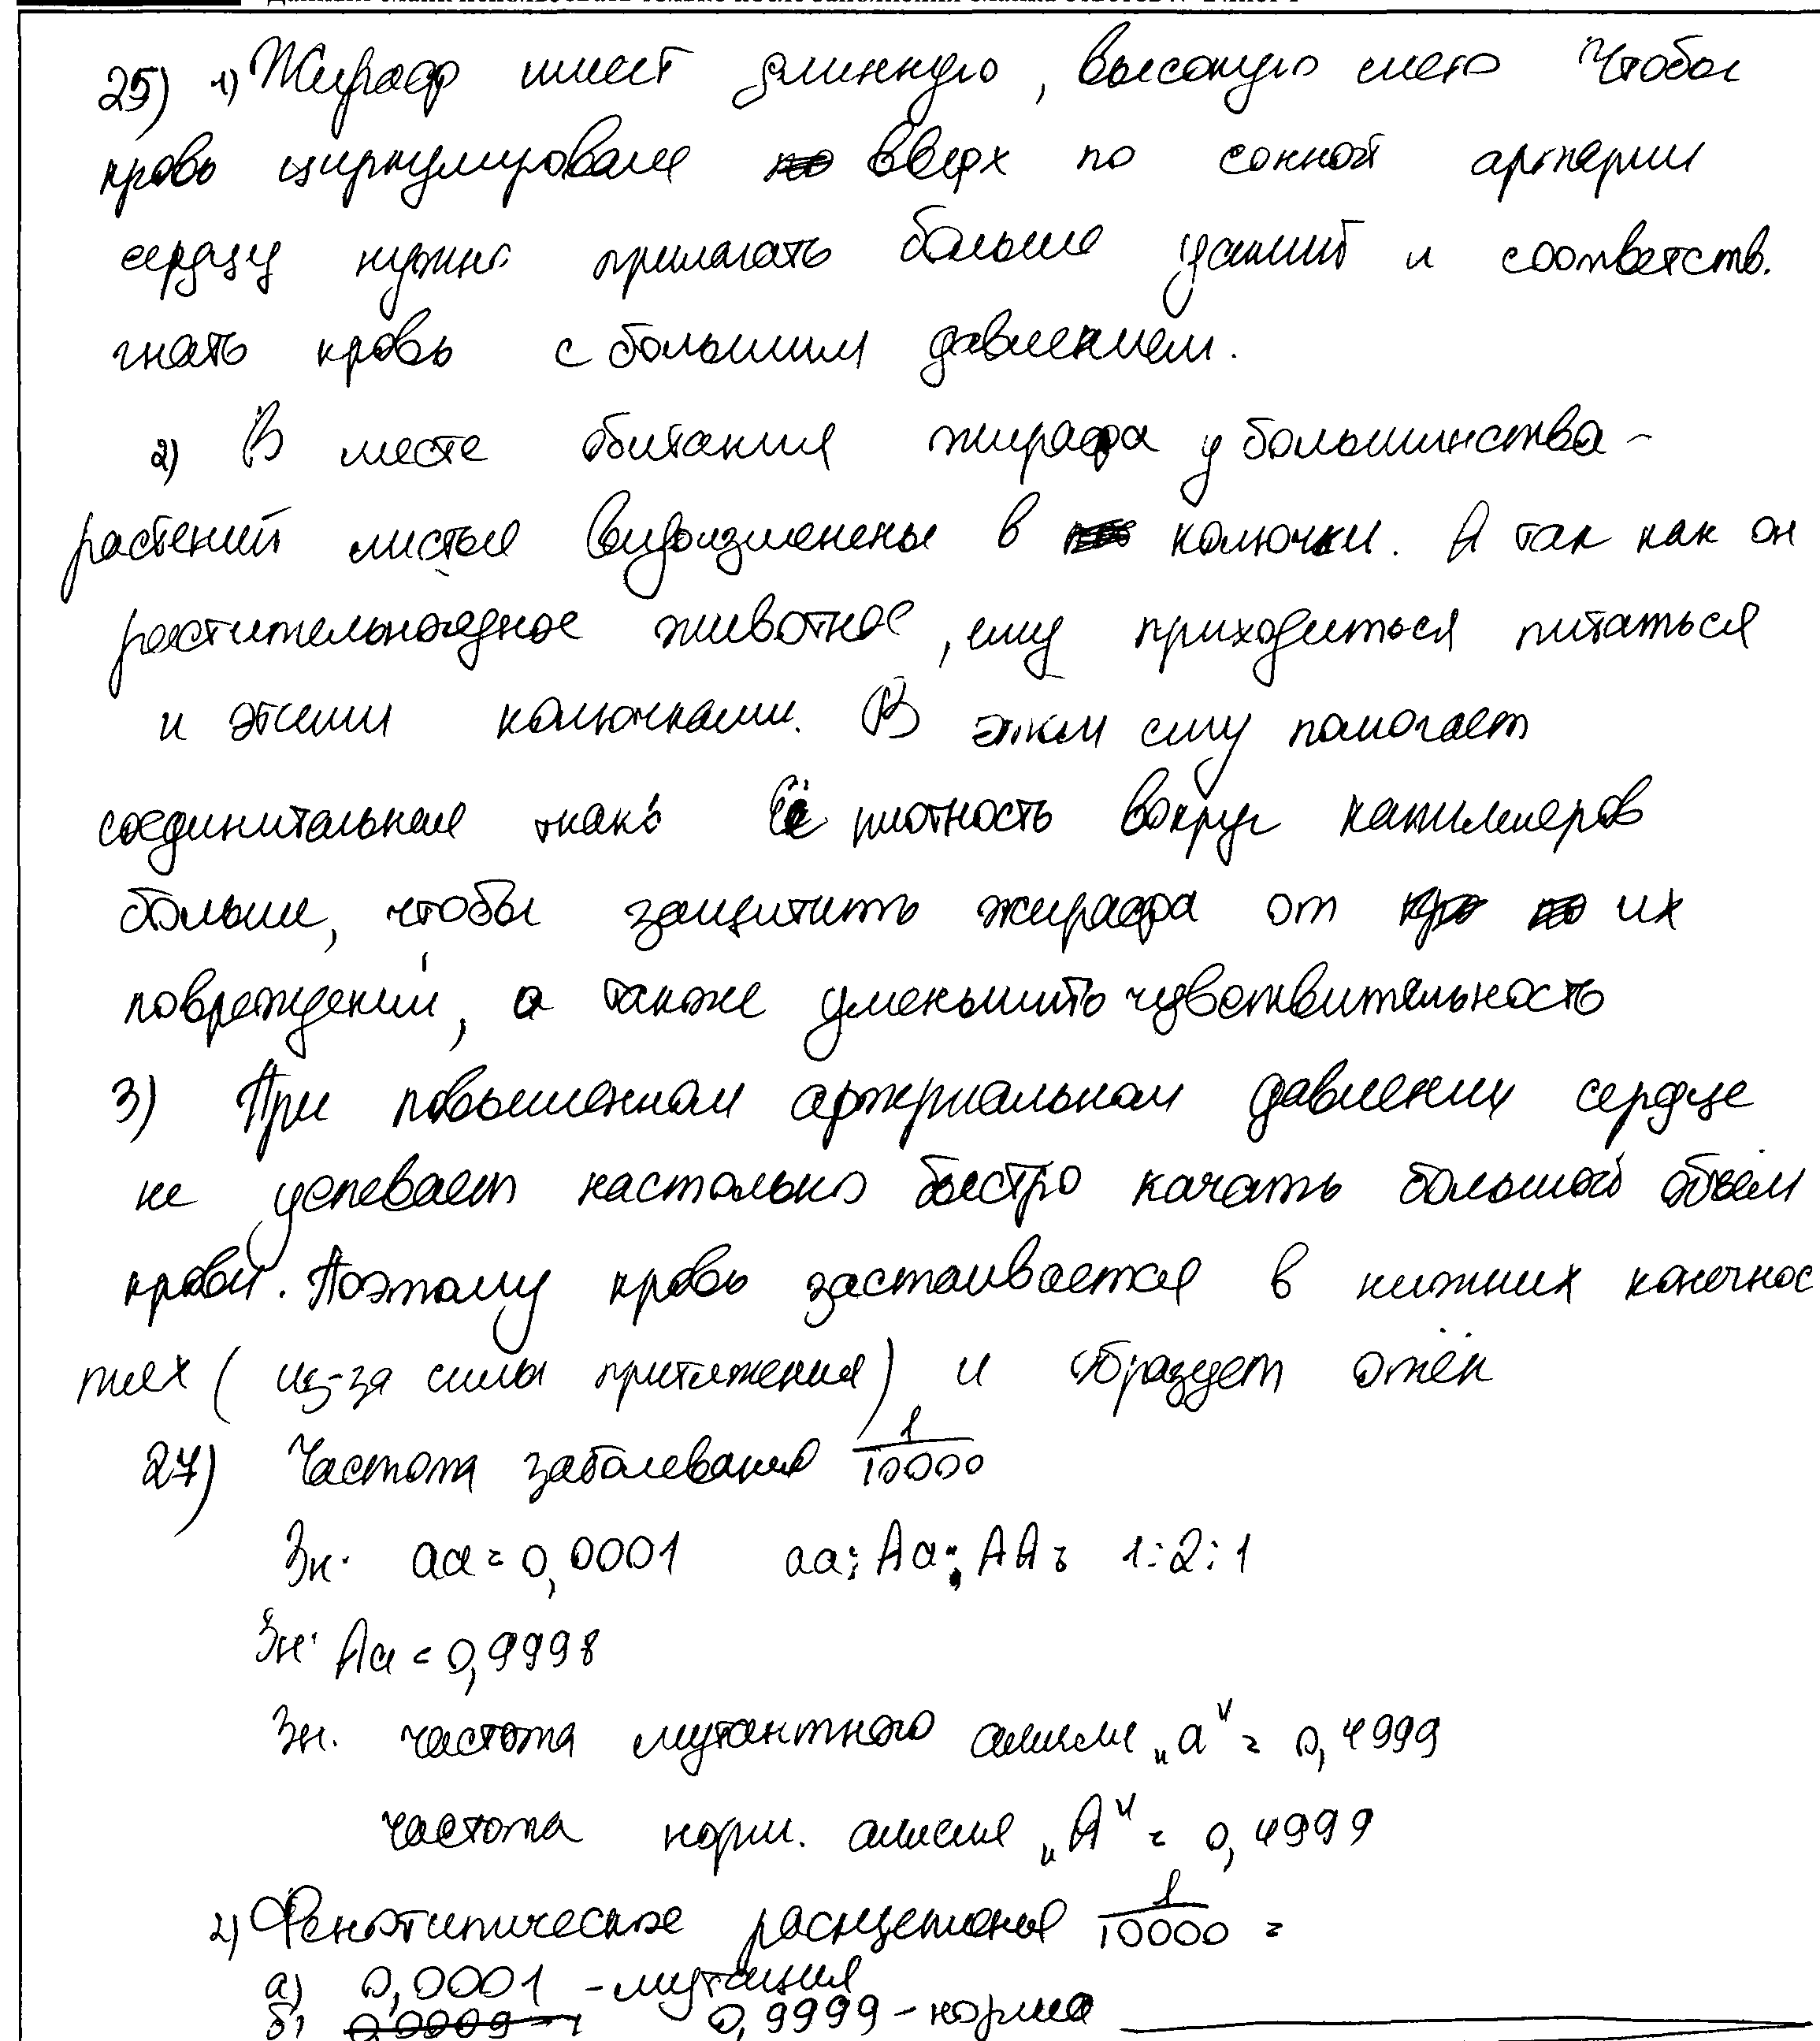 25) 1) Жираф имеет длинную, высокую шею Чтобы
кровь циркулировала вверх по сонной артерии
сердцу нужно прилагать больше усилий и соответств.
гнать кровь с большим давлением.
2) В месте обитания жирафа у большинства -
растений листья видоизменены в колючки. А так как он
растительноядное животное, ему приходиться питаться
и этими колючками. В этом ему помогает
соединительная ткань Её плотность вокруг капилляров
больше, чтобы защитить жирафа от их
повреждений, а также уменьшить чувствительность
3) При повышенном артериальном давлении сердце
не успевает настолько быстро качать большой объём
крови. Поэтому кровь застаивается в нижних конечнос
тях (из-за силы притяжения) и образует отёк
27) Частота заболевания 1/10000
Зн. аа = 0,0001 аа : Аа : АА = 1:2:1
Зн. Аа = 0,9998
Зн. частота мутантного аллеля „а" = 0,4999
частота норм. аллеля „А" = 0,4999
2) Фенотипическое расщепление 1/10000 =
а) 0,0001 - мутация
б) 0,9999 - норма